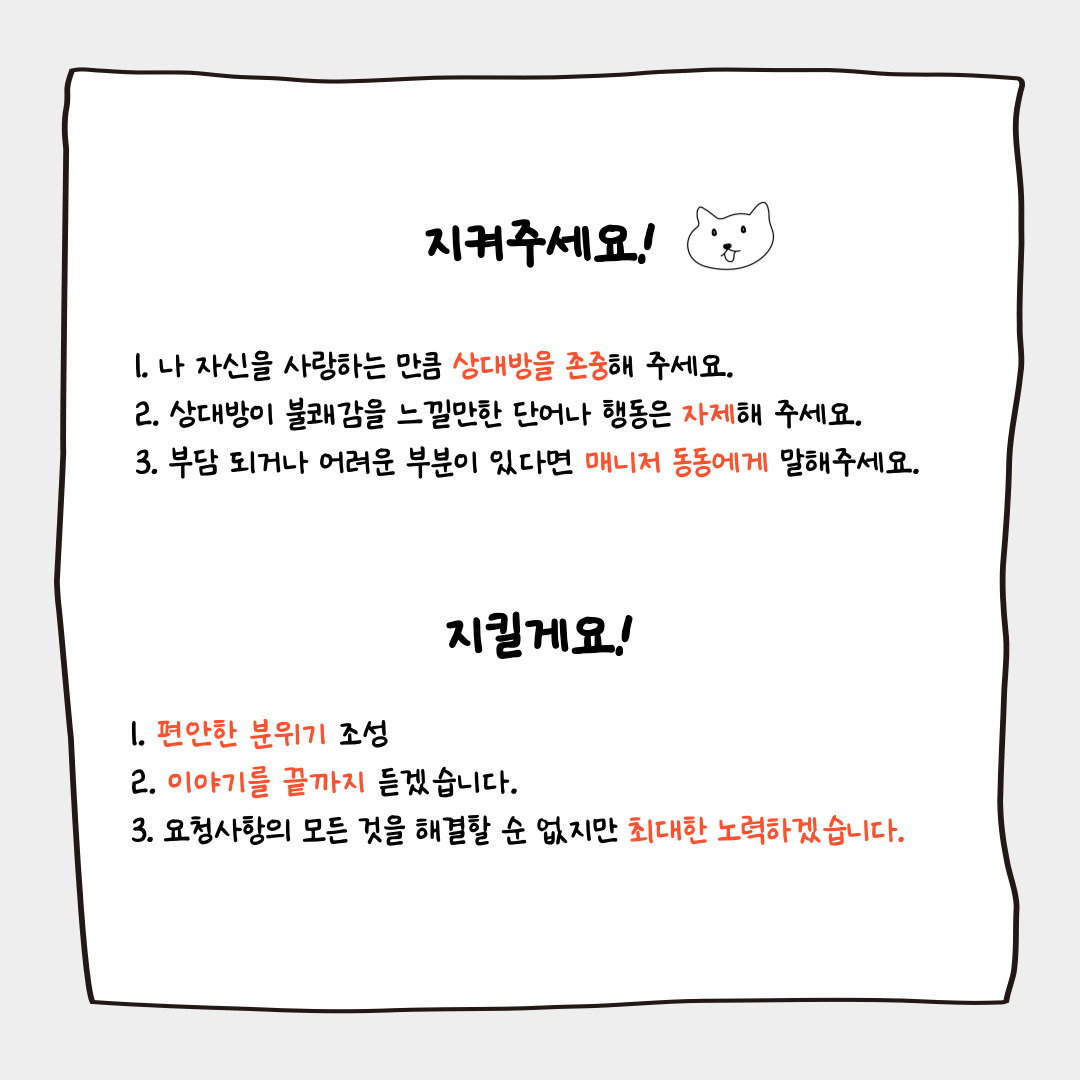 지켜주세요!
1. 나 자신을 사랑하는 만큼 상대방을 존중해 주세요.
2. 상대방이 불쾌감을 느낄만한 단어나 행동은 자제해 주세요.
3. 부담 되거나 어려운 부분이 있다면 매니저 동동에게 말해주세요.
지킬게요!
1. 편안한 분위기 조성
2. 이야기를 끝까지 듣겠습니다.
3. 요청사항의 모든 것을 해결할 순 없지만 최대한 노력하겠습니다.